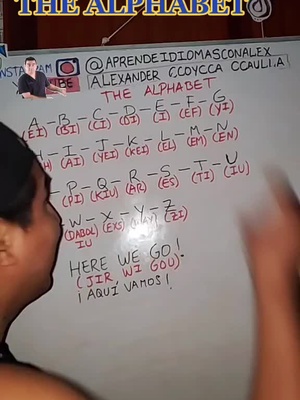 THE ALPHABET
INSTAGRAM @APRENDEIDIOMASCONALEX
BE ALEXANDER CCOYCCA CCAULLA
THE ALPHABET
A - B - C - D - E - F - G
(EI) (BI) (CI) (DI) (I) (EF) (YI)
I - J - K - L - M - N
(AI) (YEI) (KEI) (EL) (EM) (EN)
P - Q - R - S - T - U
(PI) (KIU) (AR) (ES) (TI) (IU)
W - X - Y - Z
(DABOL IU (EXS) (ZI)
HERE WE GO!
(JIR, WI GOU)
¡AQUÍ VAMOS!